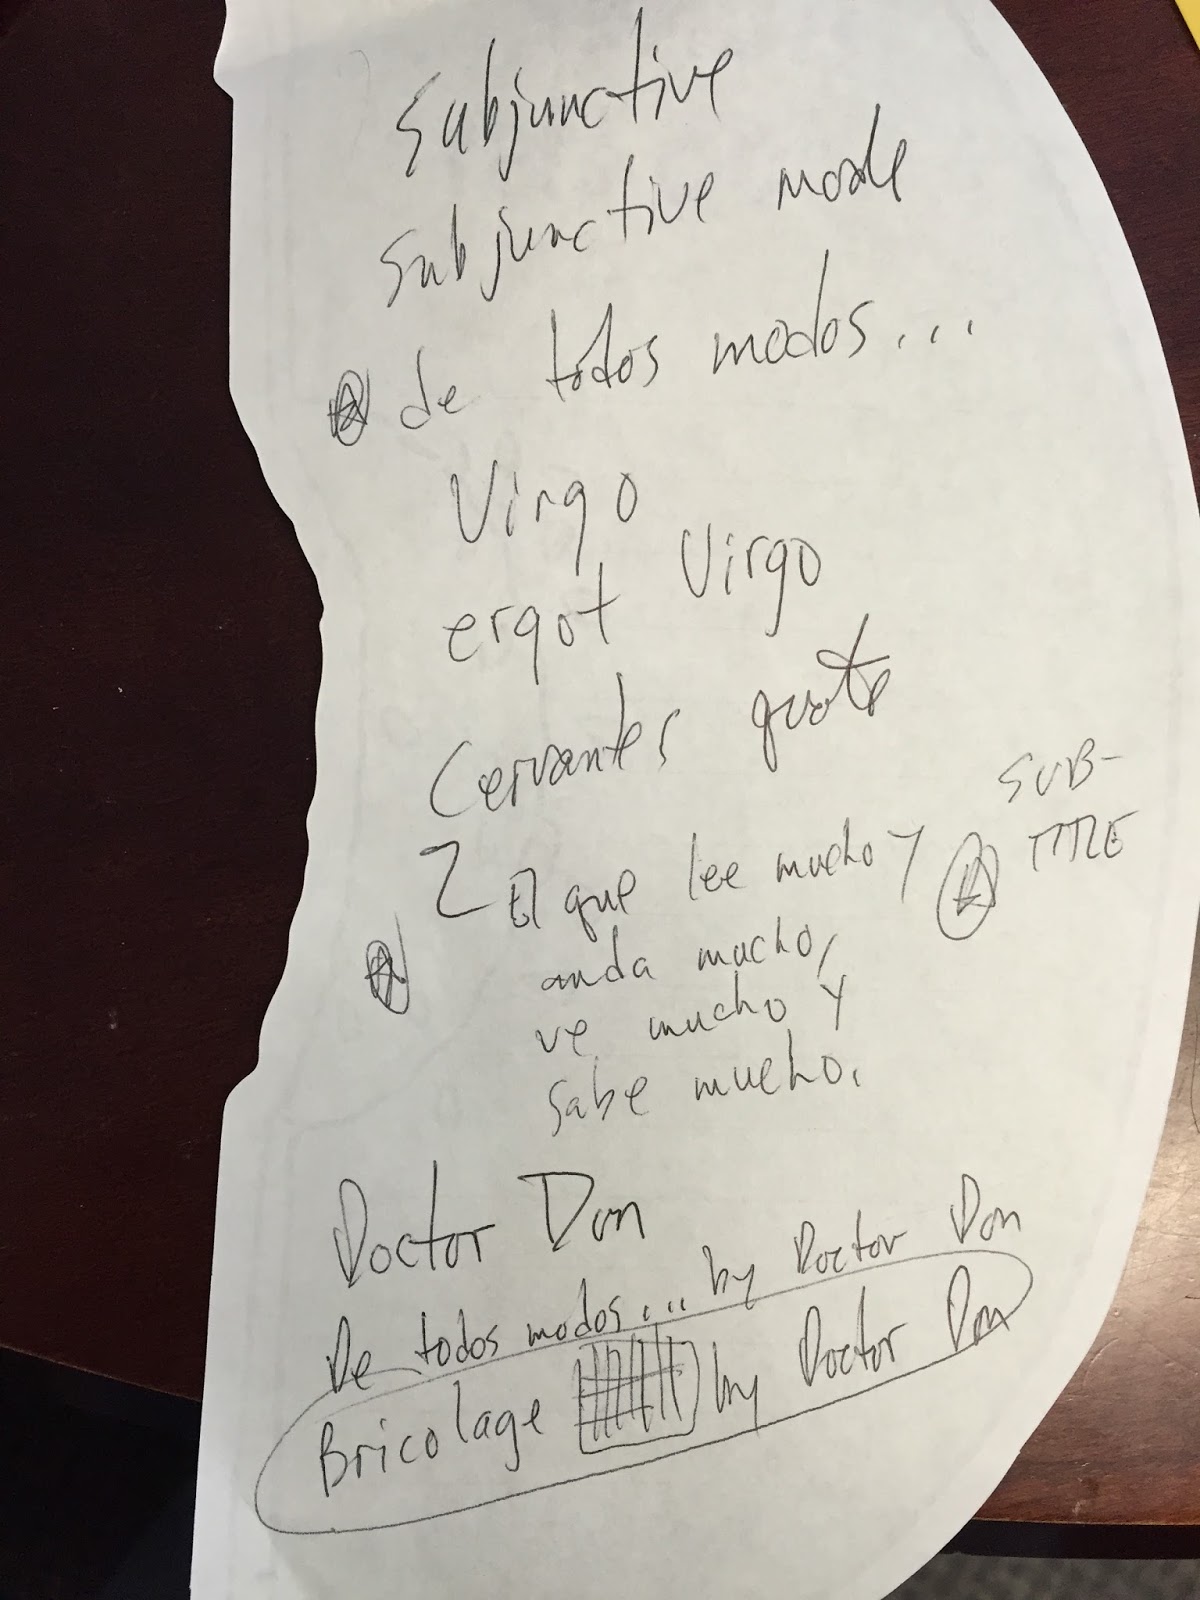 Subjunctive
Subjunctive mode
de todos modos...
Virgo
ergot Virgo
Cervantes quote
El que lee mucho y
anda mucho,
ve mucho y
sabe mucho.
SUB-
TITLE
Doctor Don
De todos modos... by Doctor Don
Bricolage by Doctor Don